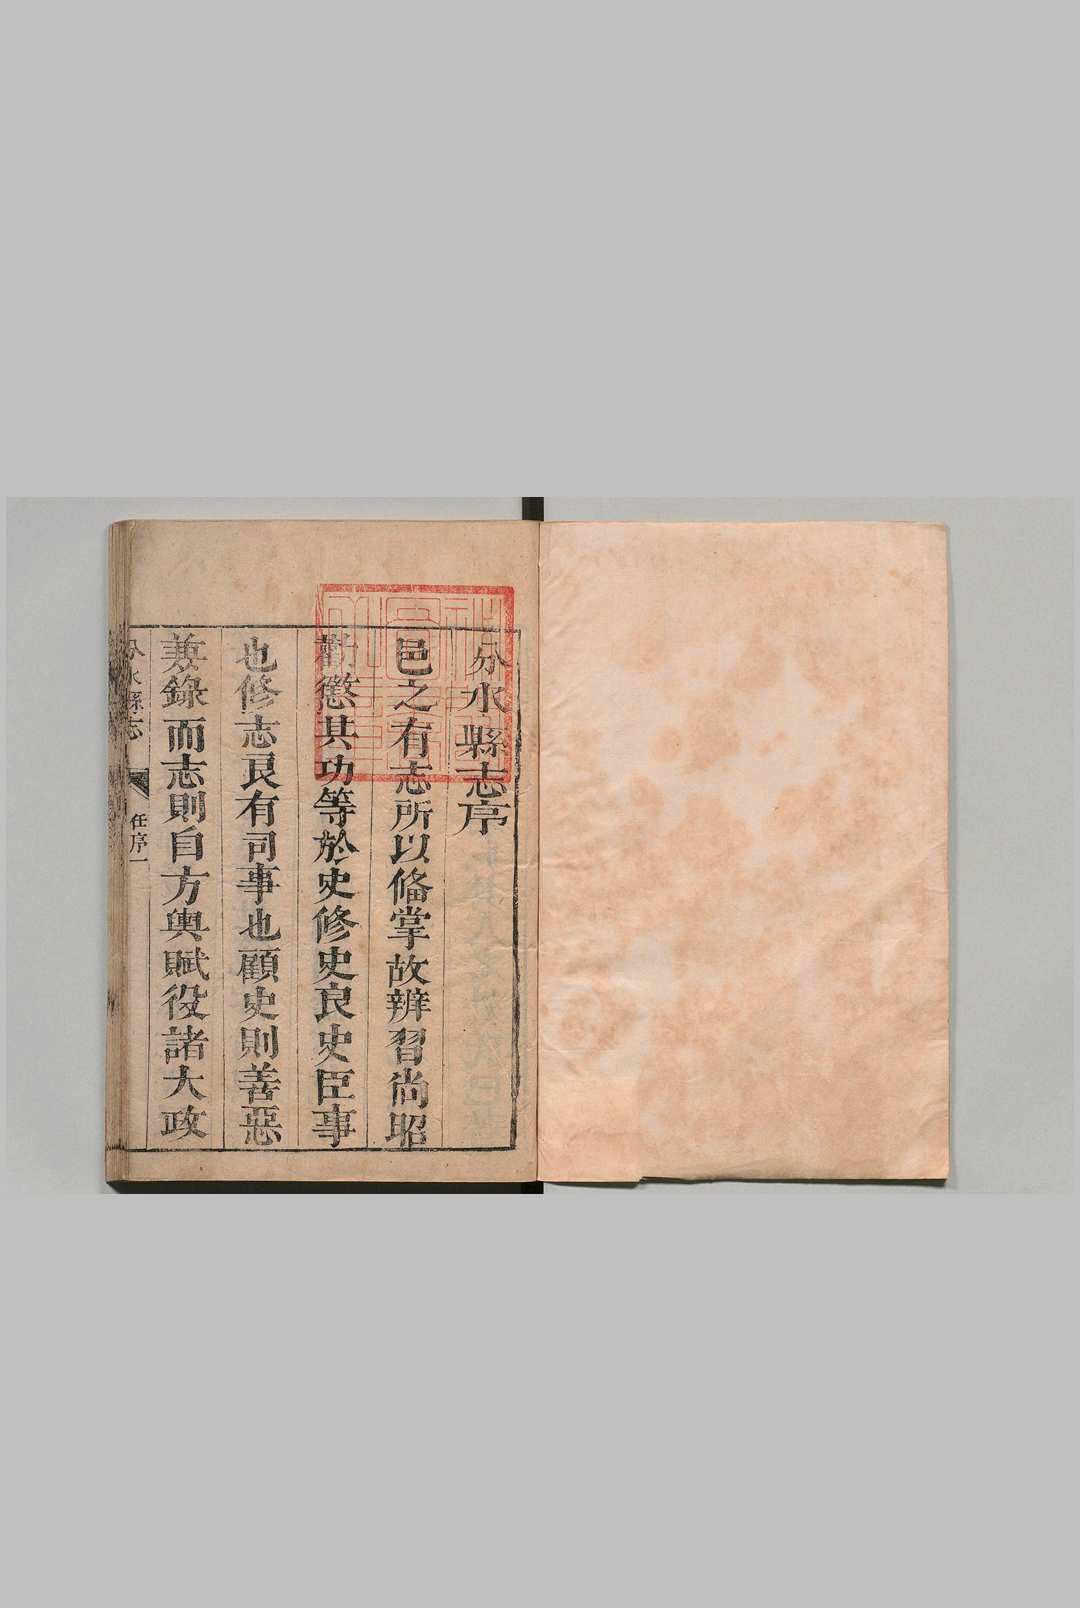 分水縣志序
邑之有志所以俻掌故辨習尚昭
勸懲其功等於史修史良史臣事
也修志良有司事也顧史則善惡
兼錄而志則自方輿賦役諸大政
分水縣志
任序一